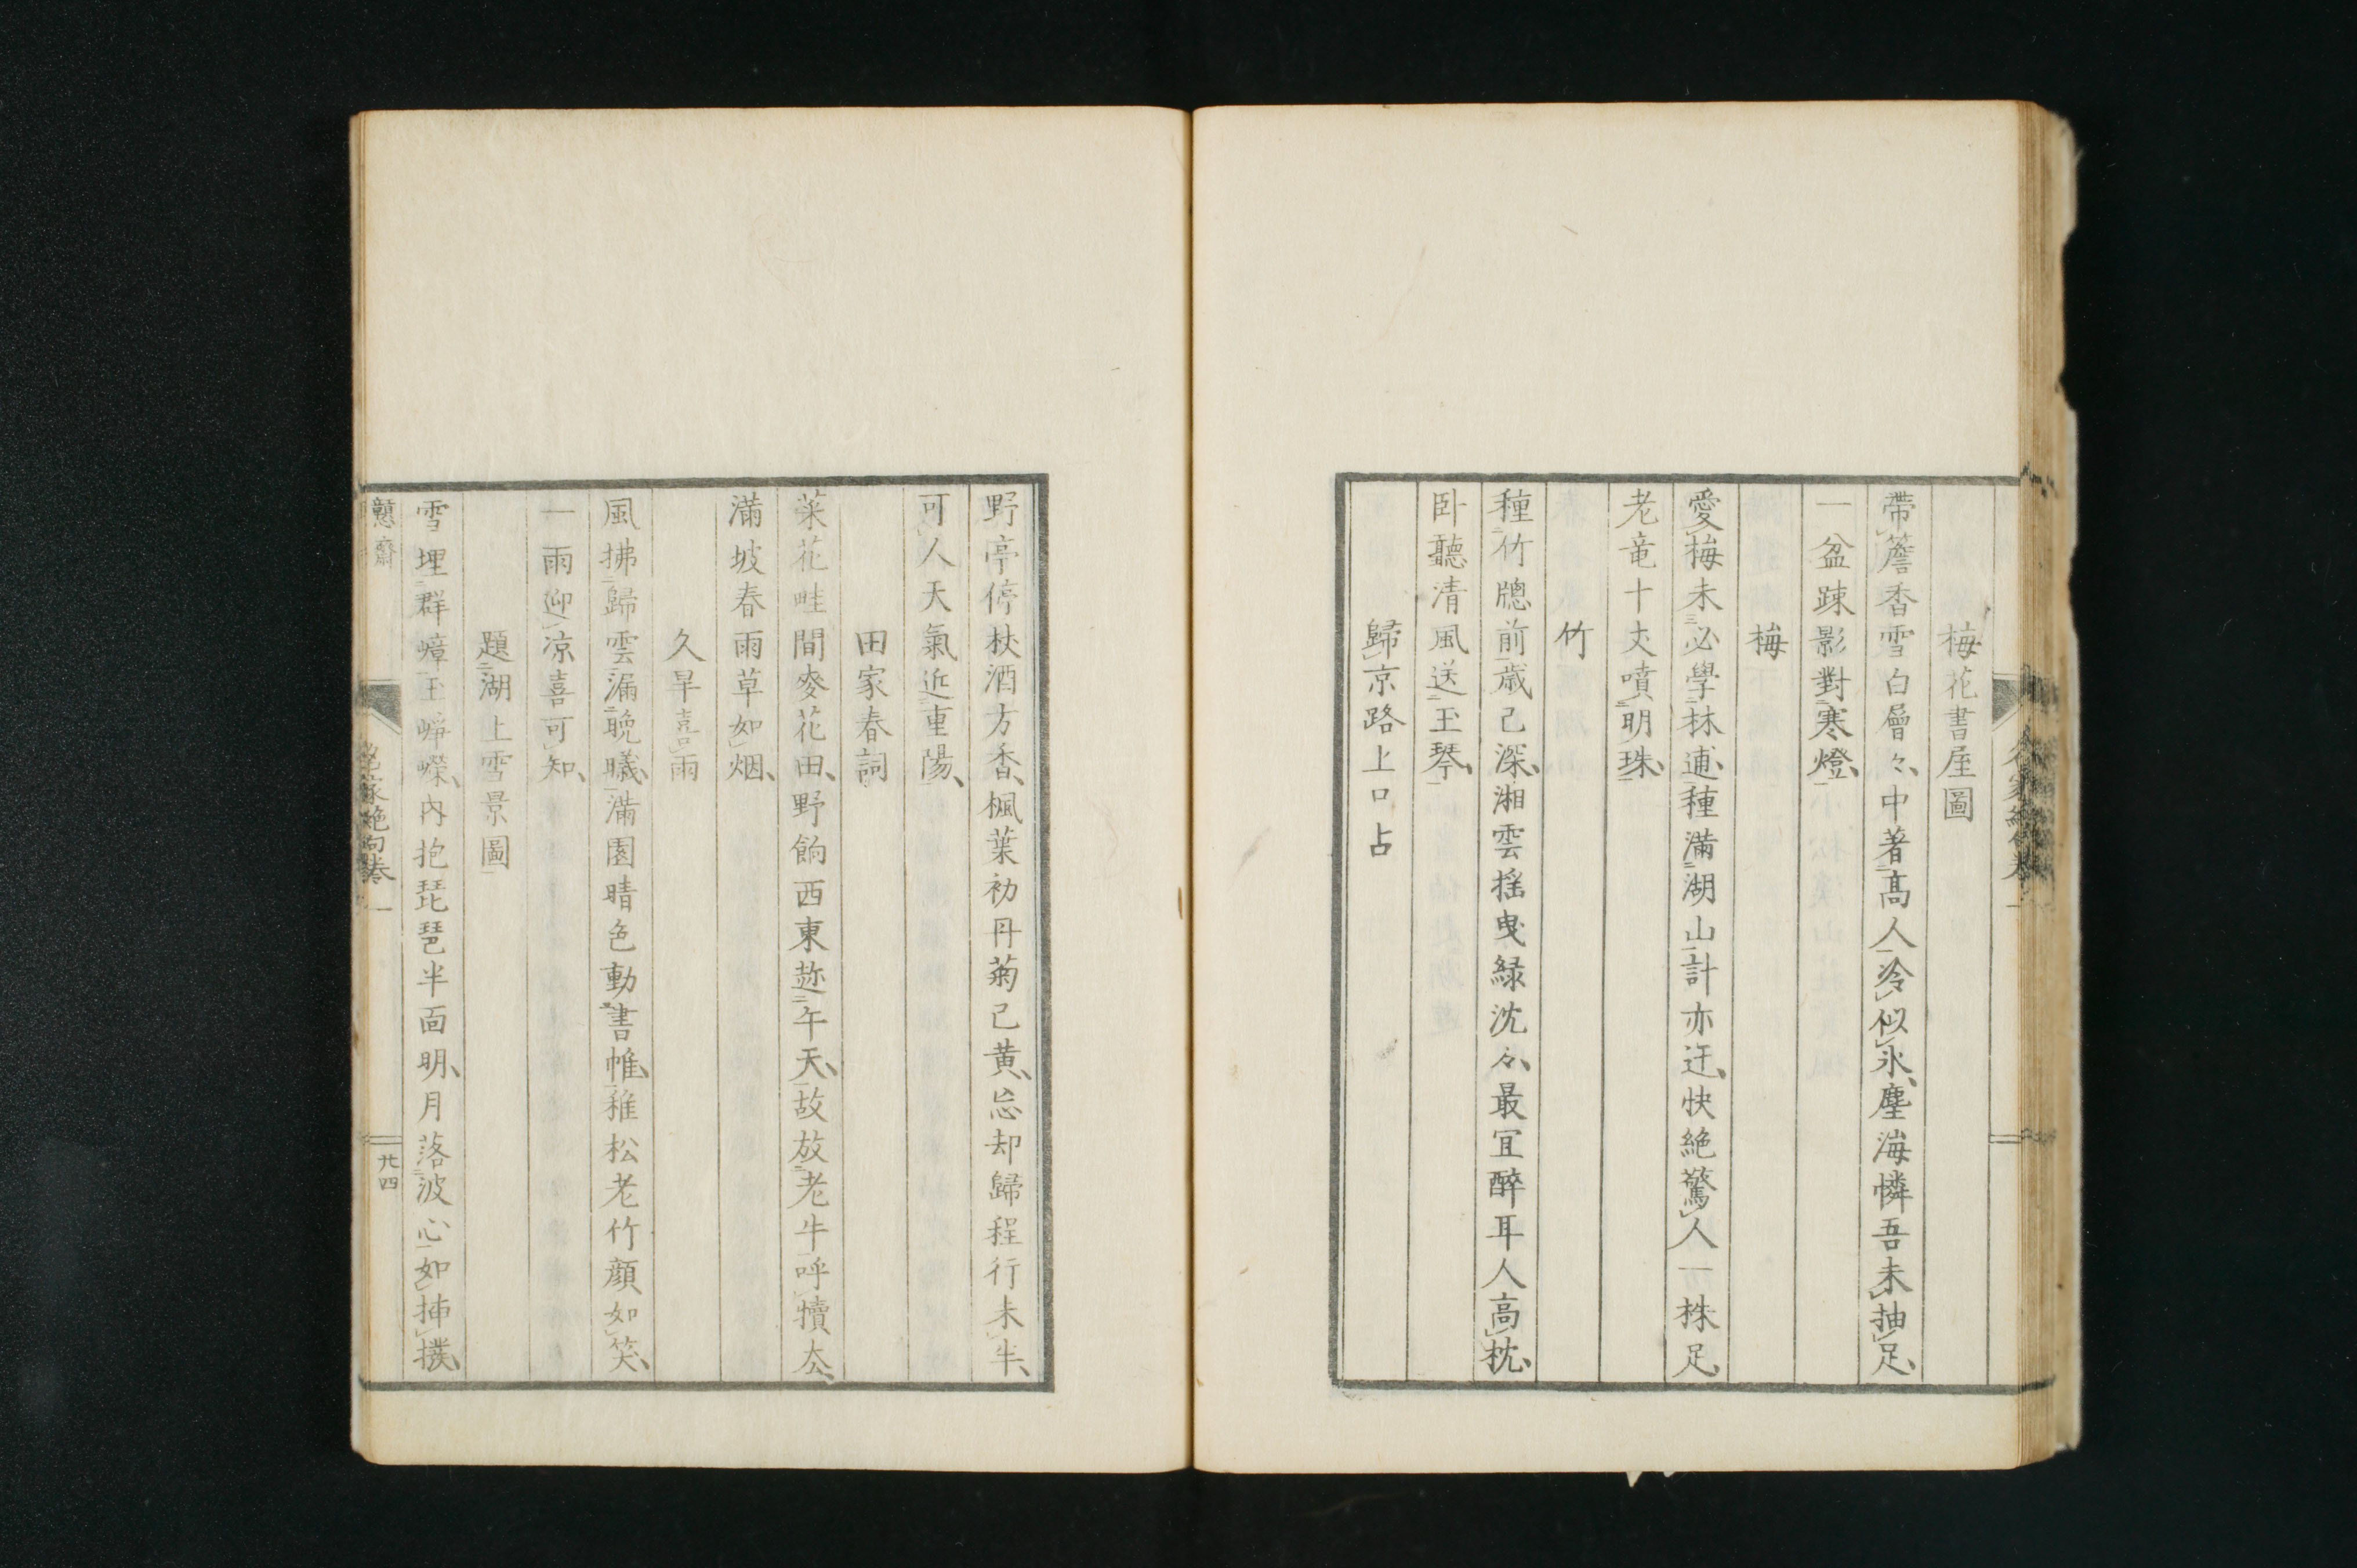 梅花書屋圖
帶簷香雪白層々中著高人冷似氷塵海憐吾未抽足
一盆踈影對寒燈
梅
愛梅未必學林逋種滿湖山計亦迂快絶驚人一株足
老竜十丈噴明珠
竹
種竹牕前歳已深湘雲揺曳緑沈々最宜醉耳人高枕
卧聽清風送玉琴
歸京路上口占
野亭停杖酒方香楓葉初丹菊已黄忘却歸程行未半
可人天氣近重陽
田家春詞
菜花畦間麥花田野餉西東趂午天故放老牛呼犢去
滿坡春雨草如烟
久旱喜雨
風拂歸雲漏晩曦滿園晴色動書帷稚松老竹顔如笑
一雨迎凉喜可知
題湖上雪景圖
雪埋群嶂玉崢嶸内抱琵琶半面明月落波心如挿撥
憩齋
絶句卷一
廿四